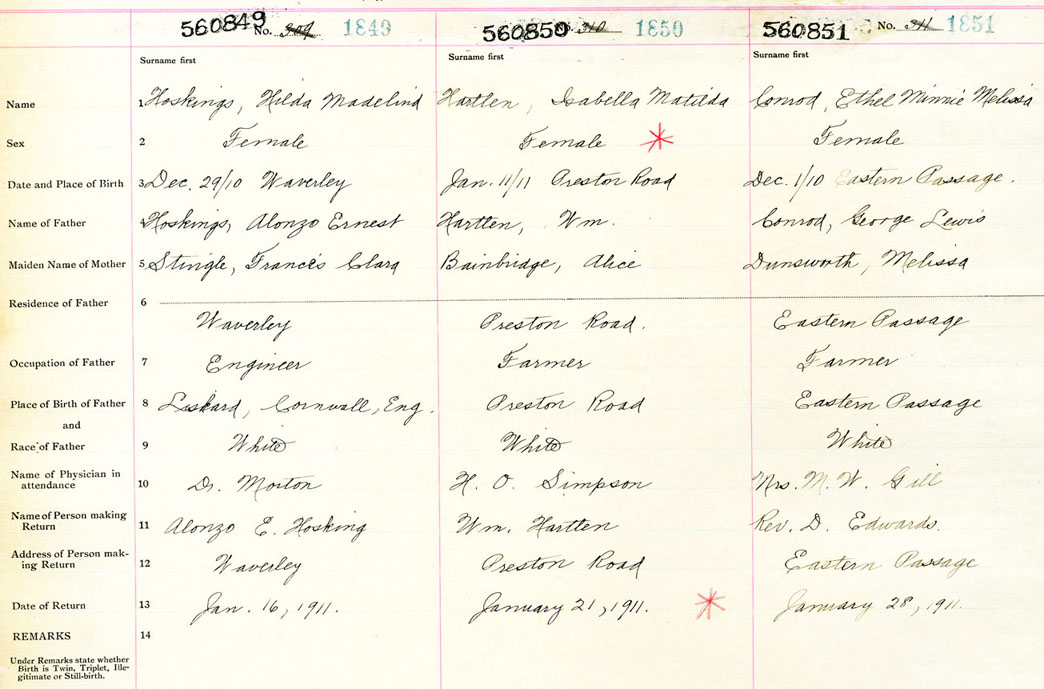 560849 No. 309 1849 560850 310 1850 560851 No. 311 1851
Surname first Surname first Surname first
Name 1 Hoskings, Hilda Madelind Hartlen, Isabella Matilda Conrod, Ethel Minnie Melissa
Sex 2 Female Female Female
Date and Place of Birth 3 Dec. 29/10 Waverley Jan. 11/11 Preston Road Dec. 1/10 Eastern Passage.
Name of Father 4 Hoskings, Alonzo Ernest Hartlen, Wm. Conrod, George Lewis
Maiden Name of Mother 5 Stingle, Francis Clara Bainbridge, Alice Dunsworth, Melissa
Residence of Father 6
Waverley Preston Road. Eastern Passage
Occupation of Father 7 Engineer Farmer Farmer
Place of Birth of Father 8 Liskard, Cornwall, Eng. Preston Road Eastern Passage
and
Race of Father 9 White White White
Name of Physician in
attendance 10 Dr. Morton H. O. Simpson Mrs. M. W. Gill
Name of Person making
Return 11 Alonzo E. Hosking Wm. Hartlen Rev. D. Edwards.
Address of Person mak-
ing Return 12 Waverley Preston Road Eastern Passage
Date of Return 13 Jan. 16, 1911. January 21, 1911. January 28, 1911.
REMARKS 14
Under Remarks state whether
Birth is Twin, Triplet, Ille-
gitimate or Still-birth.